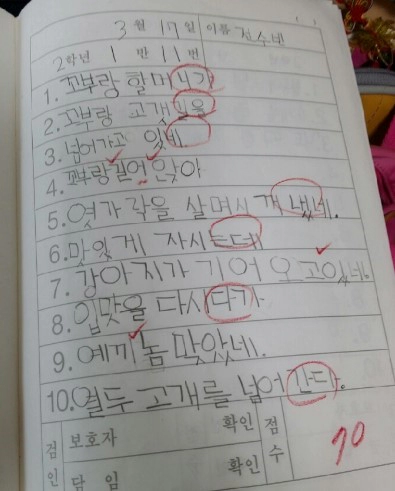 3월 17일 이름 전수빈
2학년 1반 11번
1. 꼬부랑 할머니가
2. 꼬부랑 고개길을
3. 넘어가고 있네
4. 꼬부랑길에 앉아
5. 엿가락을 살며시 개 냈네.
6. 맛있게 자시는데
7. 강아지가 기어 오고있네
8. 입맛을 다시다가
9. 예끼놈 맞았네.
10. 열두 고개를 넘어간다.
검인 보호자 확인 점수 70
담임 확인